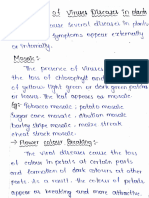 of Viruses Diseases in plants
cause several diseases in plants
symptoms appear externally
or internally.
Mosaic :
The presence of viruses
the loss of chlorophyll and
of yellow light green or dark green patches
in leaves. The leaf appear as mosaic
eg: Tobacco mosaic; potato mosaic
Sugar cane mosaic, abutilon mosaic
barley stripe mosaic, maize streak
wheat streak mosaic.
→ Flower colour Breaking :
The viral diseases cause the
loss of colour in petals at certain parts
and formation of dark colours at other
parts. As a result, the colour of petals
appear as breaking and more attractive.